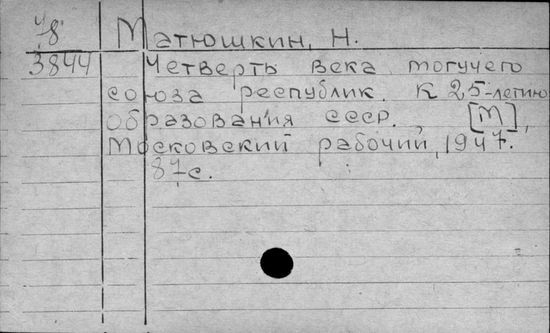 Ч/8 Матюшкин, Н.
3844 Четверть века могучего
союза республик. К 25-летию
образования СССР. , [М],
Московский рабочий, 1947.
87с.